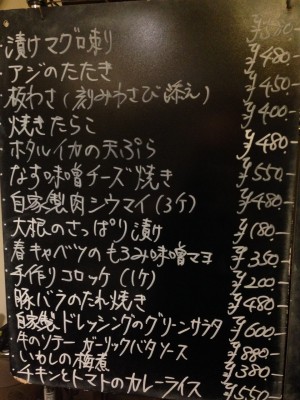 漬けマグロ刺り
アジのたたき ¥480-
板わさ(刻みわさび添え) ¥450-
焼きたらこ ¥400-
ホタルイカの天ぷら ¥480-
なす味噌チーズ焼き ¥550-
自家製肉シウマイ(3ケ) ¥480-
大根のさっぱり漬け ¥180-
春キャベツのもろみ味噌マヨ ¥350-
手作りコロッケ(1ケ) ¥200-
豚バラのたれ焼き ¥480-
自家製ドレッシングのグリーンサラダ ¥600-
牛のソテー ガーリックバタソース ¥880-
いわしの梅煮 ¥380-
チキンとトマトのカレーライス ¥550-